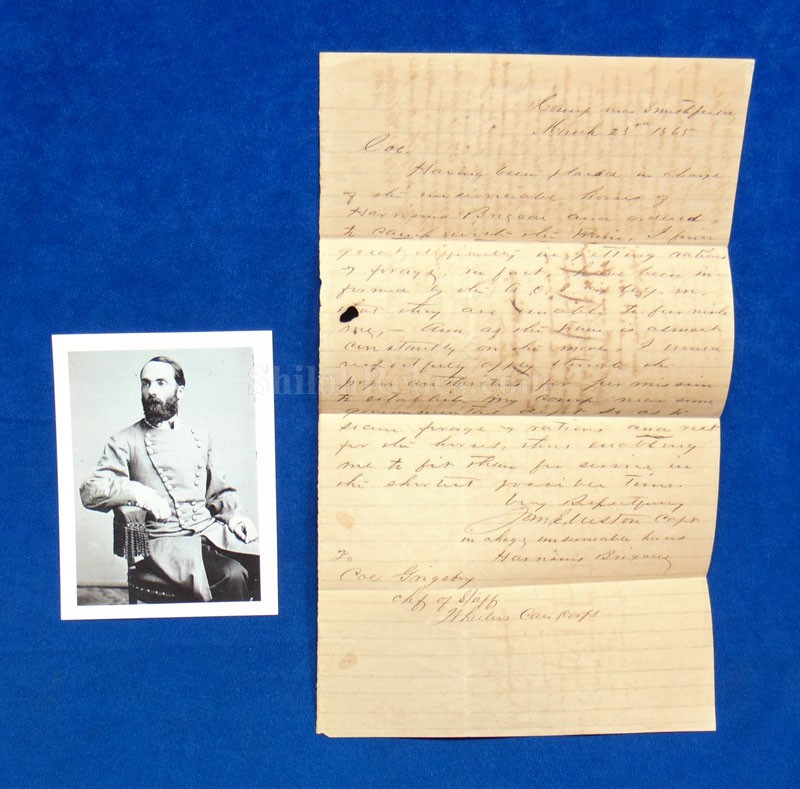 Camp near Smithfield
March 23rd 1865
Col.
Having been placed in charge
of the unserviceable horses of
Harrisons Brigade and ordered
to camp with the train, I find
great difficulty in getting rations
& forage, in fact, I have been in-
formed by the A.C.S. & Q.M.
that they are unable to furnish
me, – And as the train is almost
constantly on the move, I would
respectfully apply through the
proper authorities for permission
to establish my camp near some
governmental Dept so as to
secure forage & rations and rest
for the horses, thus enabling
me to fit them for service in
the shortest possible time.
Very Respectfully
Weston Capt
in charge unserviceable horses
Harrisons Brigade
To
Col Grigsby
Chf of Staff
Wheelers Cav Corps